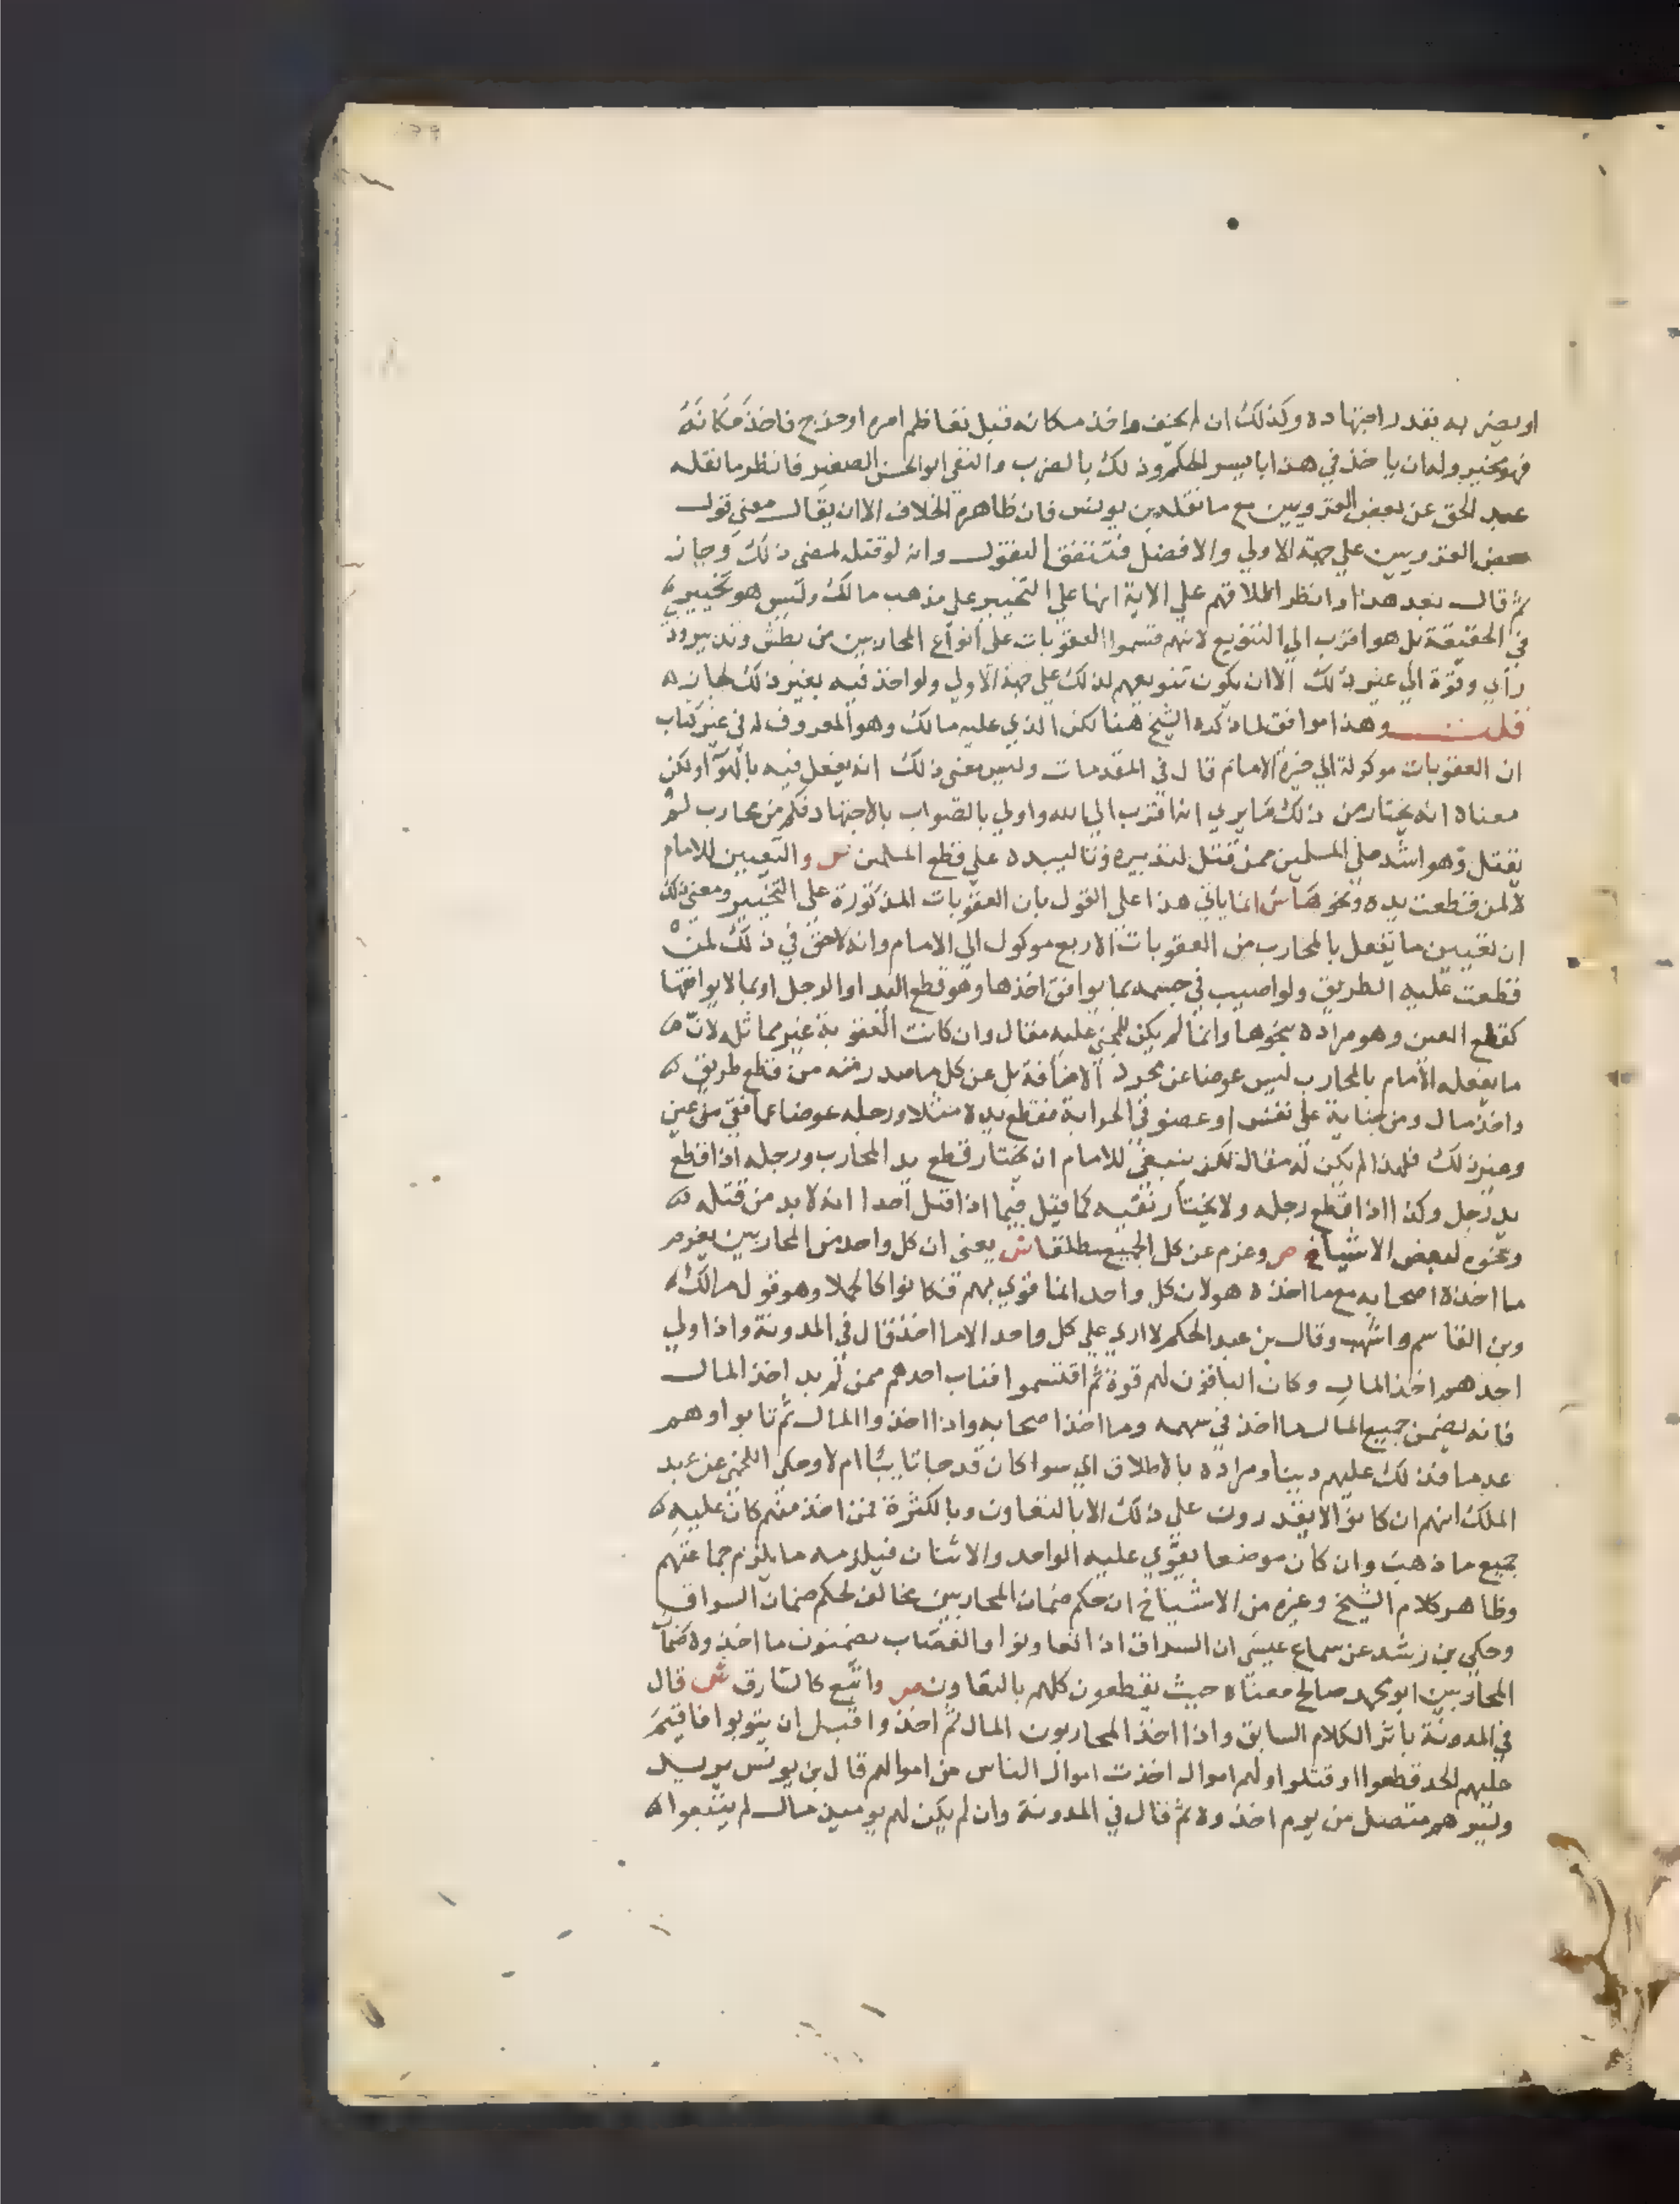 او يضربه بقدر اجتهاده وكذلك ان لم يخيف واخذ مكانه قبل تفاظم امره او حذج فاخذ مكانه
فهو مخير وله ان ياخذ في هذا بايسر الحكم وذلك بالضرب والنفي ابو الحسن الصغير فانظر ما نقله
عبد الحق عن بعض القرويين مع ما نقله بن يونس فان ظاهره الخلاف الا ان يقال معني قول
بعض القرويين علي جهة الاولي والافضل فتتفق النقول وانه لو قتل لمضي ذلك وجاز
ثم قال بعد هذا وانظر اطلاقهم علي الاية انها علي التخيير علي مذهب مالك وليس هو تخيير
في الحقيقة بل هو اقرب الي التنويع لانهم قسموا العقوبات علي انواع المحاربين من بطش وتدبير وذ
راي وقوة الي غير ذلك الا ان يكون تنويعهم لذلك علي جهة الاولي ولو اخذ فيه بغير ذلك لجاز ه
قلت وهذا موافق لما ذكره الشيخ هنا لكن الذي عليه مالك وهو المعروف له في غير كتاب
ان العقوبات موكولة الي خيرة الامام قال في المقدمات وليس معني ذلك انه يفعل فيه بالهوا ولكن
معناه انه يختار من ذلك ما يري انه اقرب الي الله واولي بالصواب بالاجتهاد فكم من محارب لم
يقتل وهو اشد علي المسلمين ممن قتل لتدبيره وتاليبه علي قطع المسلمين ص والتعيين للامام
لا لمن قطعت يده ونحوها ش انما ياتي هذا علي القول بان العقوبات المذكورة علي التخيير ومعني ذلك
ان تعيين ما يفعل بالمحارب من العقوبات الاربع موكول الي الامام وانه لا حق في ذلك لمن
قطعت عليه الطريق ولو اصيب في جسمه بما يوافق اخذها وهو قطع اليد او الرجل او بما لا يوافقها
كقطع العين وهو مراده بنحوها وانما لم يكن للمجني عليه مقال وان كانت العقوبة غير مماثله لان ه
ما يفعله الامام بالمحارب ليس عوضا عن مجرد الاضافة بل عن كل ما صدر منه من قطع طريق ه
واخذ مال ومن جناية علي نفس او عضو في الحرابة فقطع يده مثلا ورجله عوضا عما فقي من عين
وغير ذلك فلهذا لم يكن له مقال لكن ينبغي للامام ان يختار قطع يد المحارب ورجله اذا قطع
يد رجل وكذا اذا قطع رجله ولا يختار نفيه كما قيل فيما اذا قتل احدا انه لا بد من قتله ه
ونحوه لبعض الاشياخ ص وغرم عن كل الجميع مطلقا ش يعني ان كل واحد من المحاربين يغرم
ما اخذه اصحابه مع ما اخذه هو لان كل واحد انما قوي بهم فكانوا كالحملا وهو قول مالك ه
وبن القاسم واشهب وقال بن عبد الحكم لا اري علي كل واحد الا ما اخذ قال في المدونة واذا ولي
احدهم اخذ المال وكان الباقون لهم قوة ثم اقتسموا فتاب احدهم ممن لم يد اخذ المال
فانه يضمن جميع المال ما اخذ في سهمه وما اخذ اصحابه واذا اخذوا المال ثم تابوا وهم
عدما فذلك عليهم دينا ومراده بالاطلاق اي سوا كان قد جا تايبا ام لا وحكي اللخمي عن عبد
الملك انهم ان كانوا لا يقدرون علي ذلك الا بالتعاون وبالكثرة فمن اخذ منهم كان عليه ه
جميع ما ذهب وان كان موضعا يقوي عليه الواحد والاثنان فيلزمه ما يلزم جماعتهم
وظاهر كلام الشيخ وغيره من الاشياخ ان حكم ضمان المحاربين مخالف لحكم ضمان السراق
وحكي بن رشد عن سماع عيسي ان السراق اذا تعاونوا والغصاب يضمنون ما اخذوه ضمان
المحاربين ابو محمد صالح معناه حيث يقطعون كلهم بالتعاون ص واتبع كالسارق ش قال
في المدونة باثر الكلام السابق واذا اخذ المحاربون المال ثم اخذوا قبل ان يتوبوا فاقيم
عليهم الحد قطعوا او قتلوا ولهم اموال اخذت اموال الناس من اموالهم قال بن يونس يريد
ويسرهم متصل من يوم اخذوه ثم قال في المدونة وان لم يكن لهم يوميذ مال لم يتبعوا ه